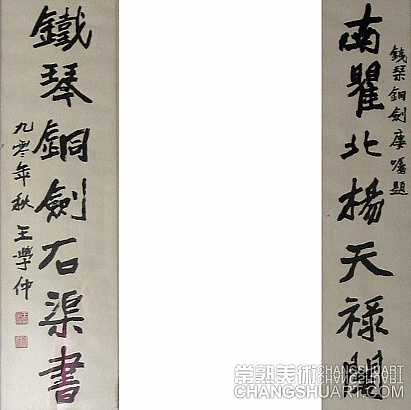 鐵琴銅劍廔囑題
南瞿北楊天祿閣
鐵琴銅劍石渠書
九零年秋 王學仲
常熟美術 CHANGSHUART
CHANGSHUART.COM